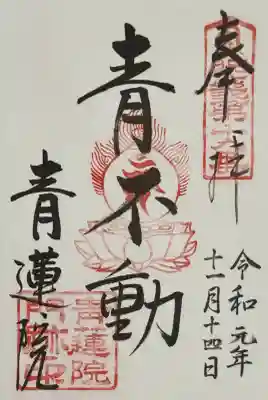 奉拝
青不動
令和元年
十一月十四日
青蓮院
青蓮院
門跡